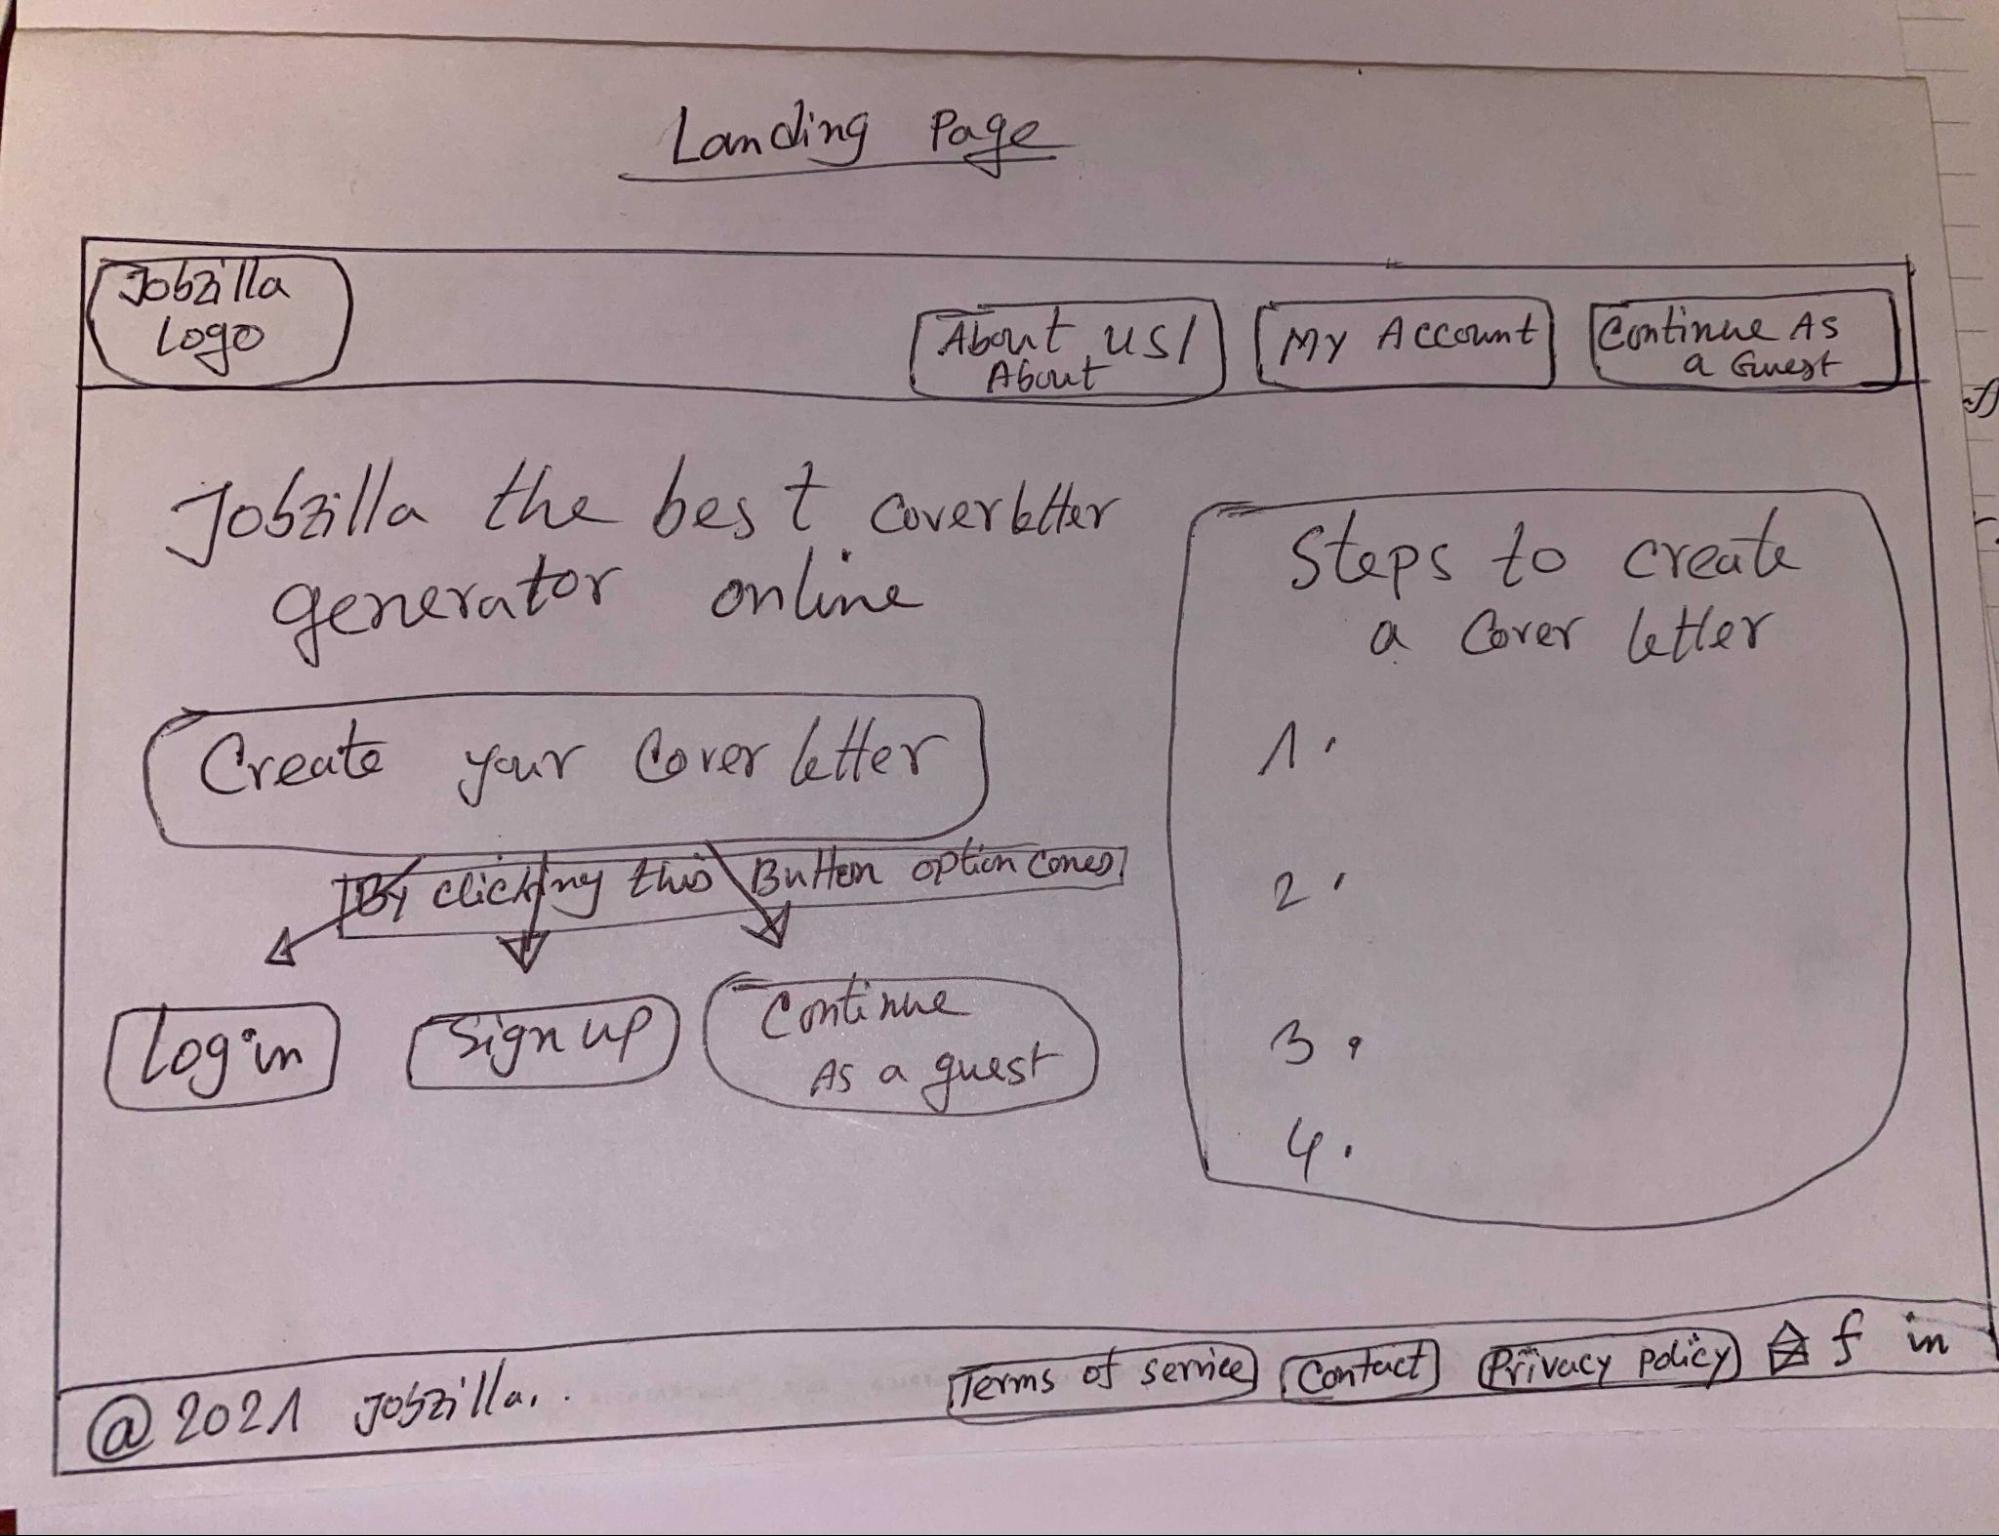 Landing Page
Jobzilla
Logo
About us/
About
My Account
Continue As
a Guest
Jobzilla the best coverletter
generator online
Create your Cover letter
By clicking this Button option comes
Login
Sign up
Continue
As a guest
Steps to create
a Cover letter
1.
2.
3.
4.
@ 2021 Jobzilla..
Terms of service
Contact
Privacy policy
f in